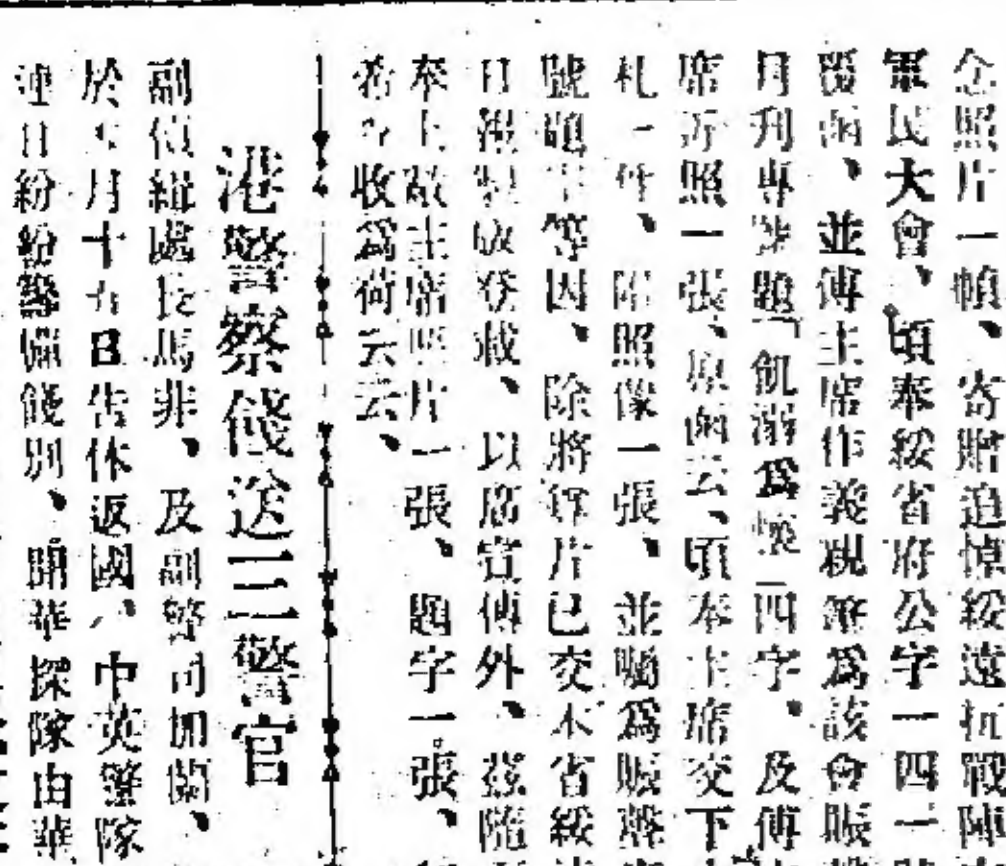 念照片一幀、寄贈追悼綏遠抗戰陣
軍民大會、頃奉綏省府公字一四一
覆函、並傅主席作義親筆爲該會賑
月刊專號題「飢溺爲懷」四字、及傅
席近照一張、原函云、頃奉主席交下
札一件、附照像一張、並囑爲賑聲
號題字等因、除將釋片已交本省綏
日報製版登載、以廣宣傳外、茲隨
奉上敝主席照片一張、題字一張、
希 收爲荷云云、
港警察餞送三警官
副偵緝處長馬非、及副警司加蘭、
於 月十五日告休返國、中英警隊
連日紛紛 餞別、聞華探隊由華